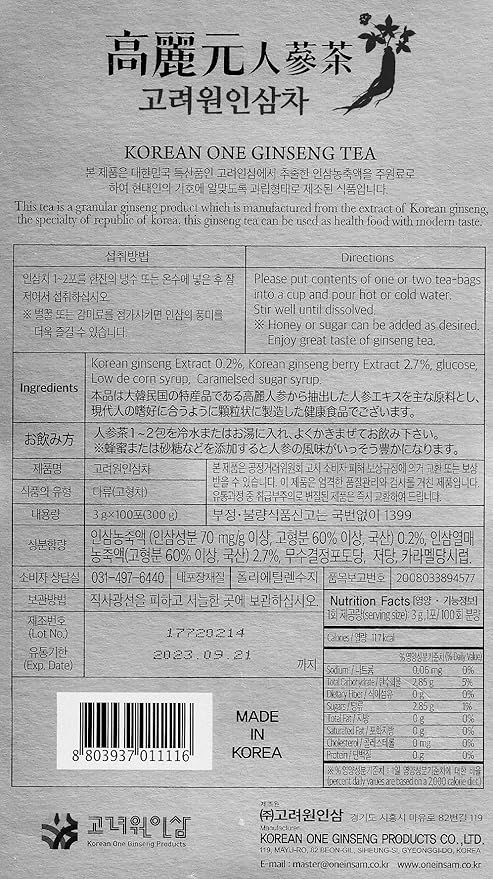 高麗元人蔘茶
고려원인삼차
KOREAN ONE GINSENG TEA
본 제품은 대한민국 특산품인 고려인삼에서 추출한 인삼농축액을 주원료로
하여 현대인의 기호에 알맞도록 과립형태로 제조된 식품입니다.
This tea is a granular ginseng product which is manufactured from the extract of Korean ginseng,
the specialty of republic of korea. this ginseng tea can be used as health food with modern taste.
섭취방법
인삼차 1~2포를 한잔의 냉수 또는 온수에 넣은 후 잘
저어서 섭취하십시오.
※ 벌꿀 또는 감미료를 첨가시키면 인삼의 풍미를
더욱 즐길 수 있습니다.
Directions
Please put contents of one or two tea-bags
into a cup and pour hot or cold water.
Stir well until dissolved.
※ Honey or sugar can be added as desired.
Enjoy great taste of ginseng tea.
Ingredients
Korean ginseng Extract 0.2%, Korean ginseng berry Extract 2.7%, glucose,
Low de corn syrup, Caramelsed sugar syrup.
本品は大韓民国の特産品である高麗人参から抽出した人参エキスを主な原料とし,
現代人の嗜好に合うように顆粒状に製造した健康食品でございます。
お飲み方
人参茶1~2包を冷水またはお湯に入れ、よくかきまぜてお飲み下さい。
※蜂蜜または砂糖などを添加すると人参の風味がいっそう豊かになります。
제품명
고려원인삼차
식품의 유형
다류(고형차)
내용량
3 g×100포(300 g)
본 제품은 공정거래위원회 고시 소비자 피해 보상규정에 의거 교환 또는 보상
받을 수 있습니다. 이 제품은 엄격한 품질관리와 검사를 거친 제품입니다.
유통과정 중 취급부주의로 변질된 제품은 즉시 교환하여 드립니다.
부정·불량식품신고는 국번없이 1399
성분함량
인삼농축액 (인삼성분 70 mg/g 이상, 고형분 60% 이상, 국산) 0.2%, 인삼열매
농축액(고형분 60% 이상, 국산) 2.7%, 무수결정포도당, 저당, 카라멜당시럽.
소비자 상담실
031-497-6440
내포장재질
폴리에틸렌수지
품목보고번호
2008033894577
보관방법
직사광선을 피하고 서늘한 곳에 보관하십시오.
제조번호
(Lot No.)
17720214
유통기한
(Exp. Date)
2023.09.21
까지
Nutrition Facts [영양·기능정보]
1회 제공량(serving size): 3 g, 1포/100회 분량
Calories / 열량: 11.7 kcal
% 영양성분기준치 (% Daily Value)
Sodium / 나트륨 0.06 mg 0%
Total Carbohydrate / 탄수화물 2.85 g 5%
Dietary Fiber / 식이섬유 0 g 0%
Sugars / 당류 2.85 g 1%
Total Fat / 지방 0 g 0%
Saturated Fat / 포화지방 0 g 0%
Cholesterol / 콜레스테롤 0 mg 0%
Protein / 단백질 0 g 0%
※ % 영양성분기준치 : 1일 영양성분기준치에 대한 비율
(percent daily values are based on a 2,000 calorie diet.)
8 803937 011116
MADE
IN
KOREA
고려원인삼
Korean One Ginseng Products
제조원
㈜고려원인삼 경기도 시흥시 마유로 82번길 119
Manufacturer
KOREAN ONE GINSENG PRODUCTS CO., LTD.
119, MAYU-RO, 82 BEON-GIL, SIHEUNG-SI, GYEONGGI-DO, KOREA
E-mail : master@oneinsam.co.kr www.oneinsam.co.kr